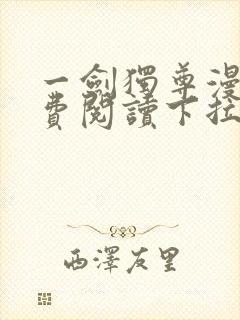 一劍獨尊漫
費閱讀下拉
西澤友里